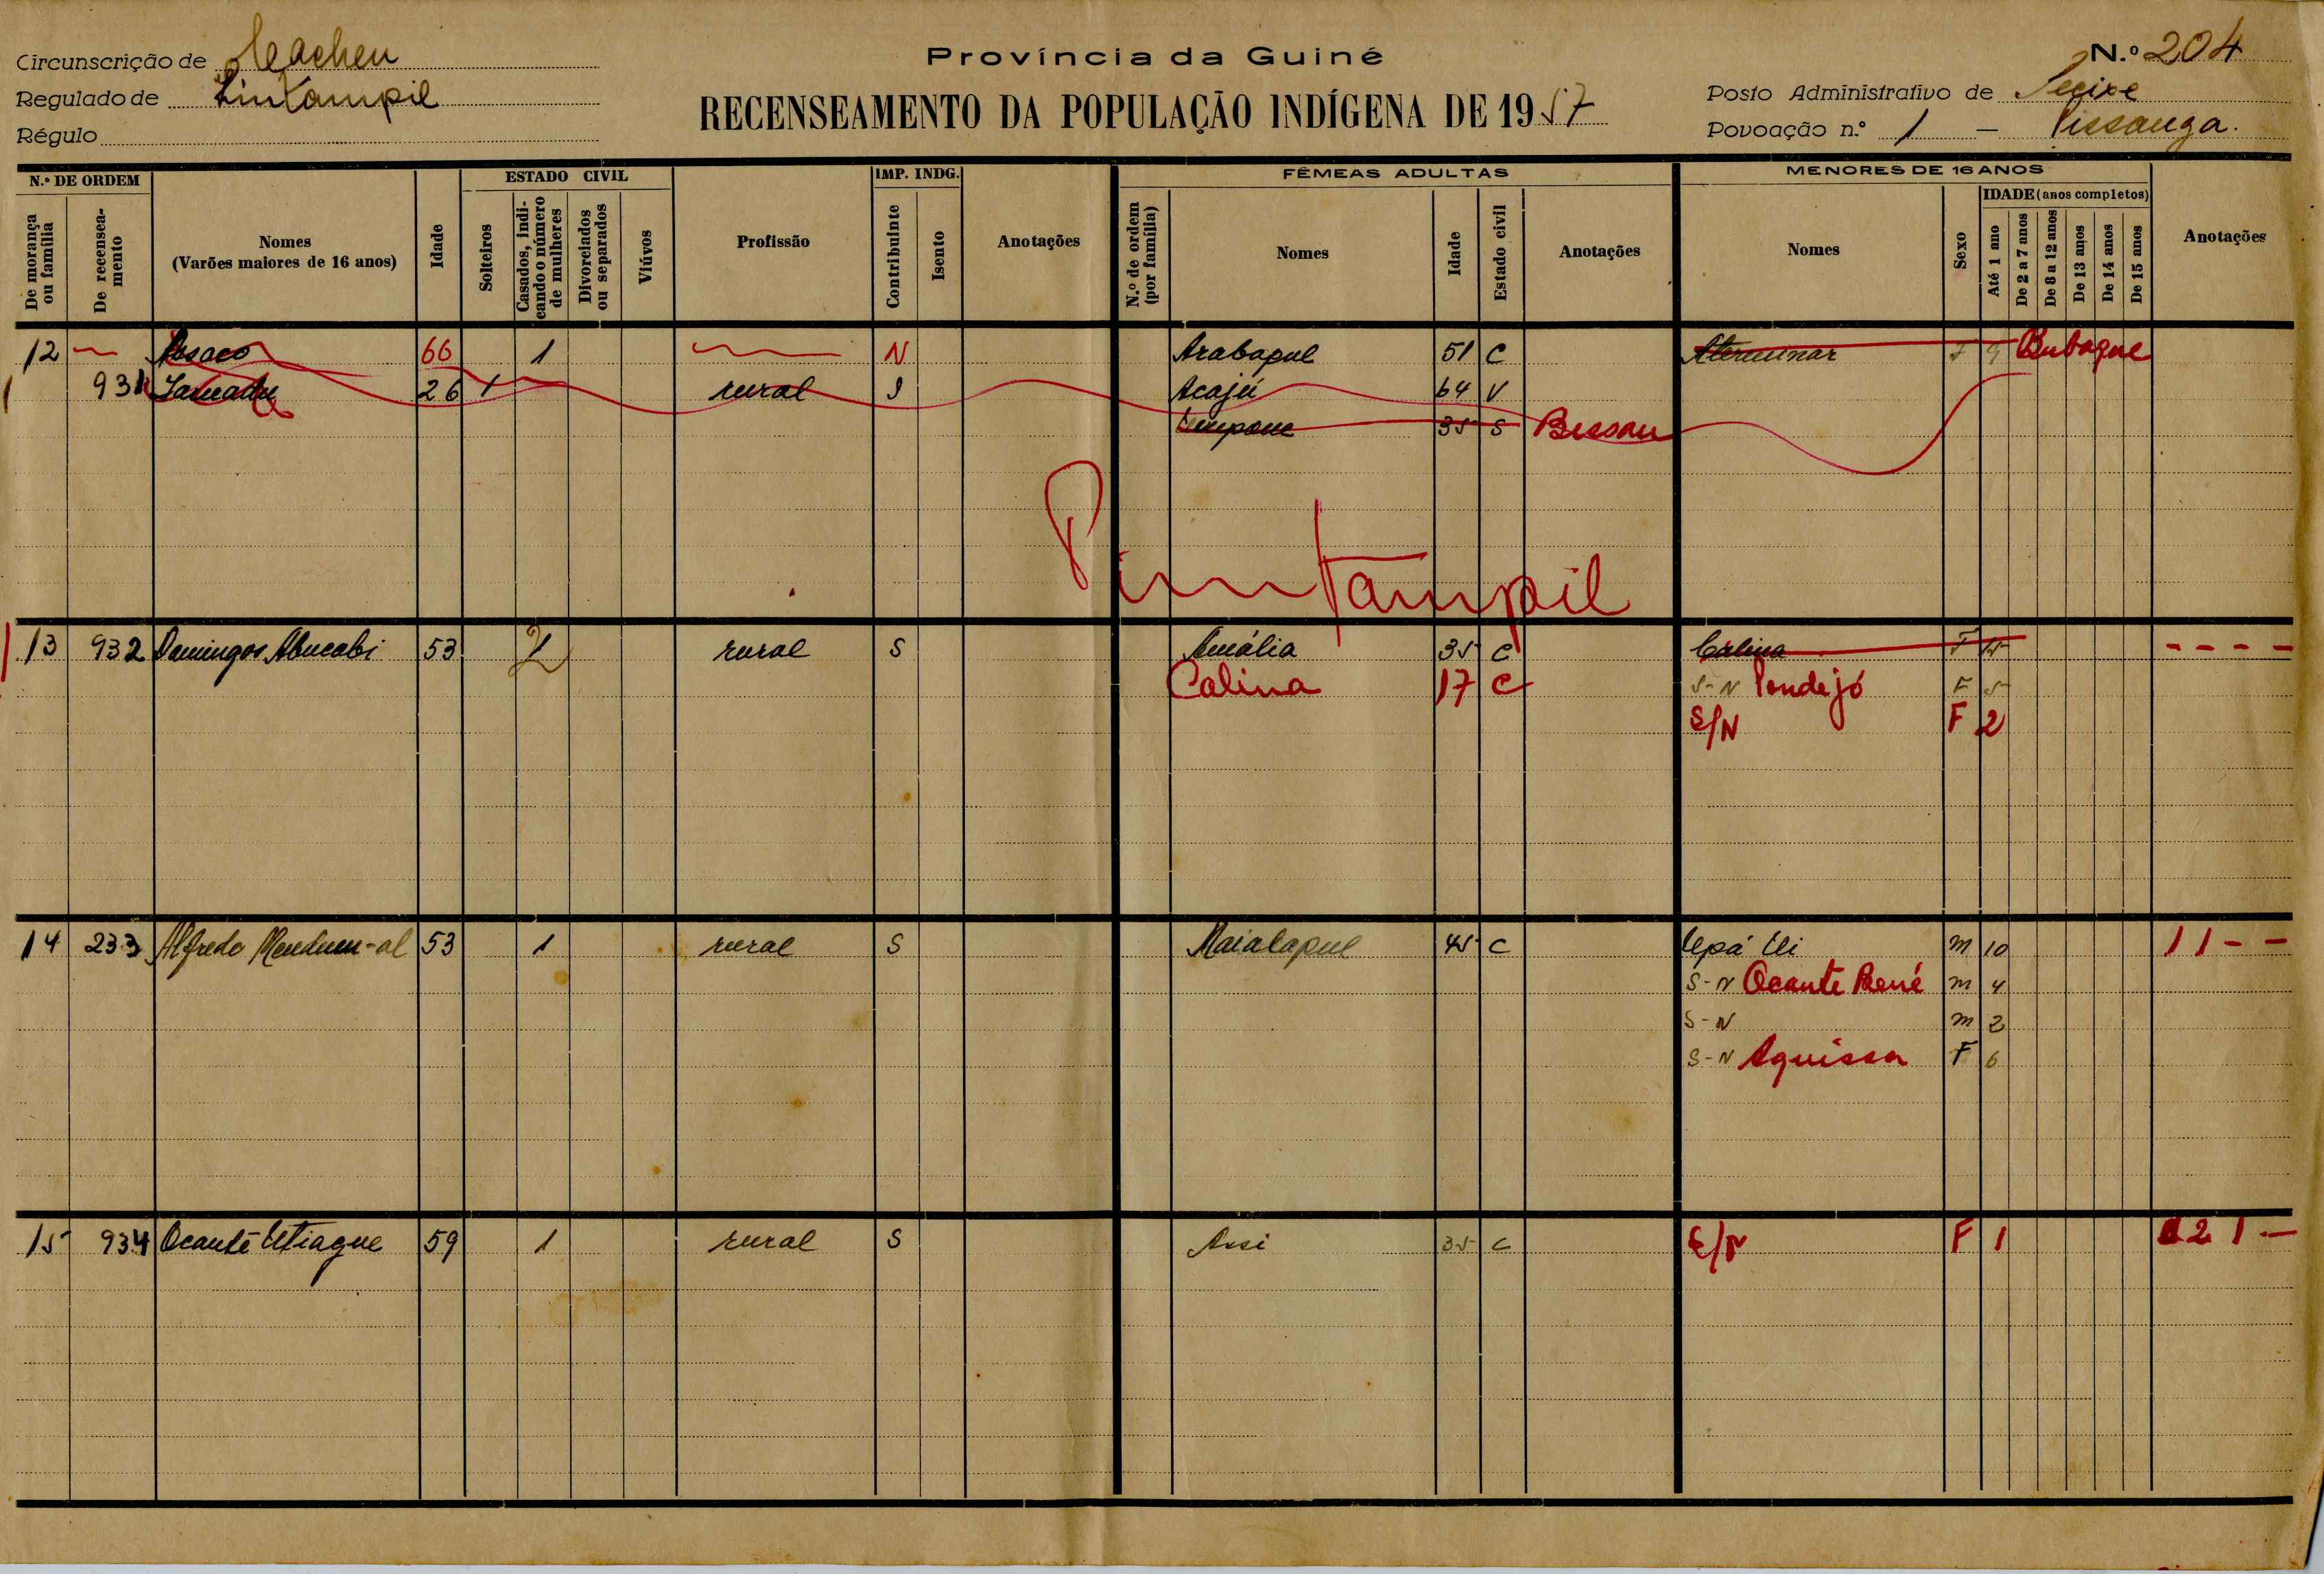 Circunscrição de Cacheu
Província da Guiné
N.º 204
Regulado de Pintampil
RECENSEAMENTO DA POPULAÇÃO INDÍGENA DE 1957
Posto Administrativo de Jeixe
Régulo
Povoação n.º 1 — Pissanga.
N.º DE ORDEM
De morança ou família
De recenseamento
Nomes
(Varões maiores de 16 anos)
Idade
ESTADO CIVIL
Solteiros
Casados, indicando o número de mulheres
Divorciados ou separados
Viúvos
Profissão
IMP. INDG.
Contribuinte
Isento
Anotações
FÊMEAS ADULTAS
N.º de ordem (por família)
Nomes
Idade
Estado civil
Anotações
MENORES DE 16 ANOS
Nomes
Sexo
IDADE (anos completos)
Até 1 ano
De 2 a 7 anos
De 8 a 12 anos
De 13 anos
De 14 anos
De 15 anos
Anotações
12 — 66 1 N Arabapul 51 C Aterminar F 9 Bubaque
1 931 26 1 rural S Acajú 64 V
35 S Bissau
Pintampil
13 932 Domingos Abucabi 53 2 rural S Amália 35 C Calina F 15 - - - -
Calina 17 C S-N Pondejó F 5
S/N F 2
14 233 Alfredo Mendum-al 53 1 rural S Maialapul 45 C Upá Ui m 10 1 1 - -
S-N Ocante René m 4
S-N m 2
S-N Aquissa F 6
15 934 Ocanté Utiaque 59 1 rural S Assi 35 C S/N F 1 2 1 —